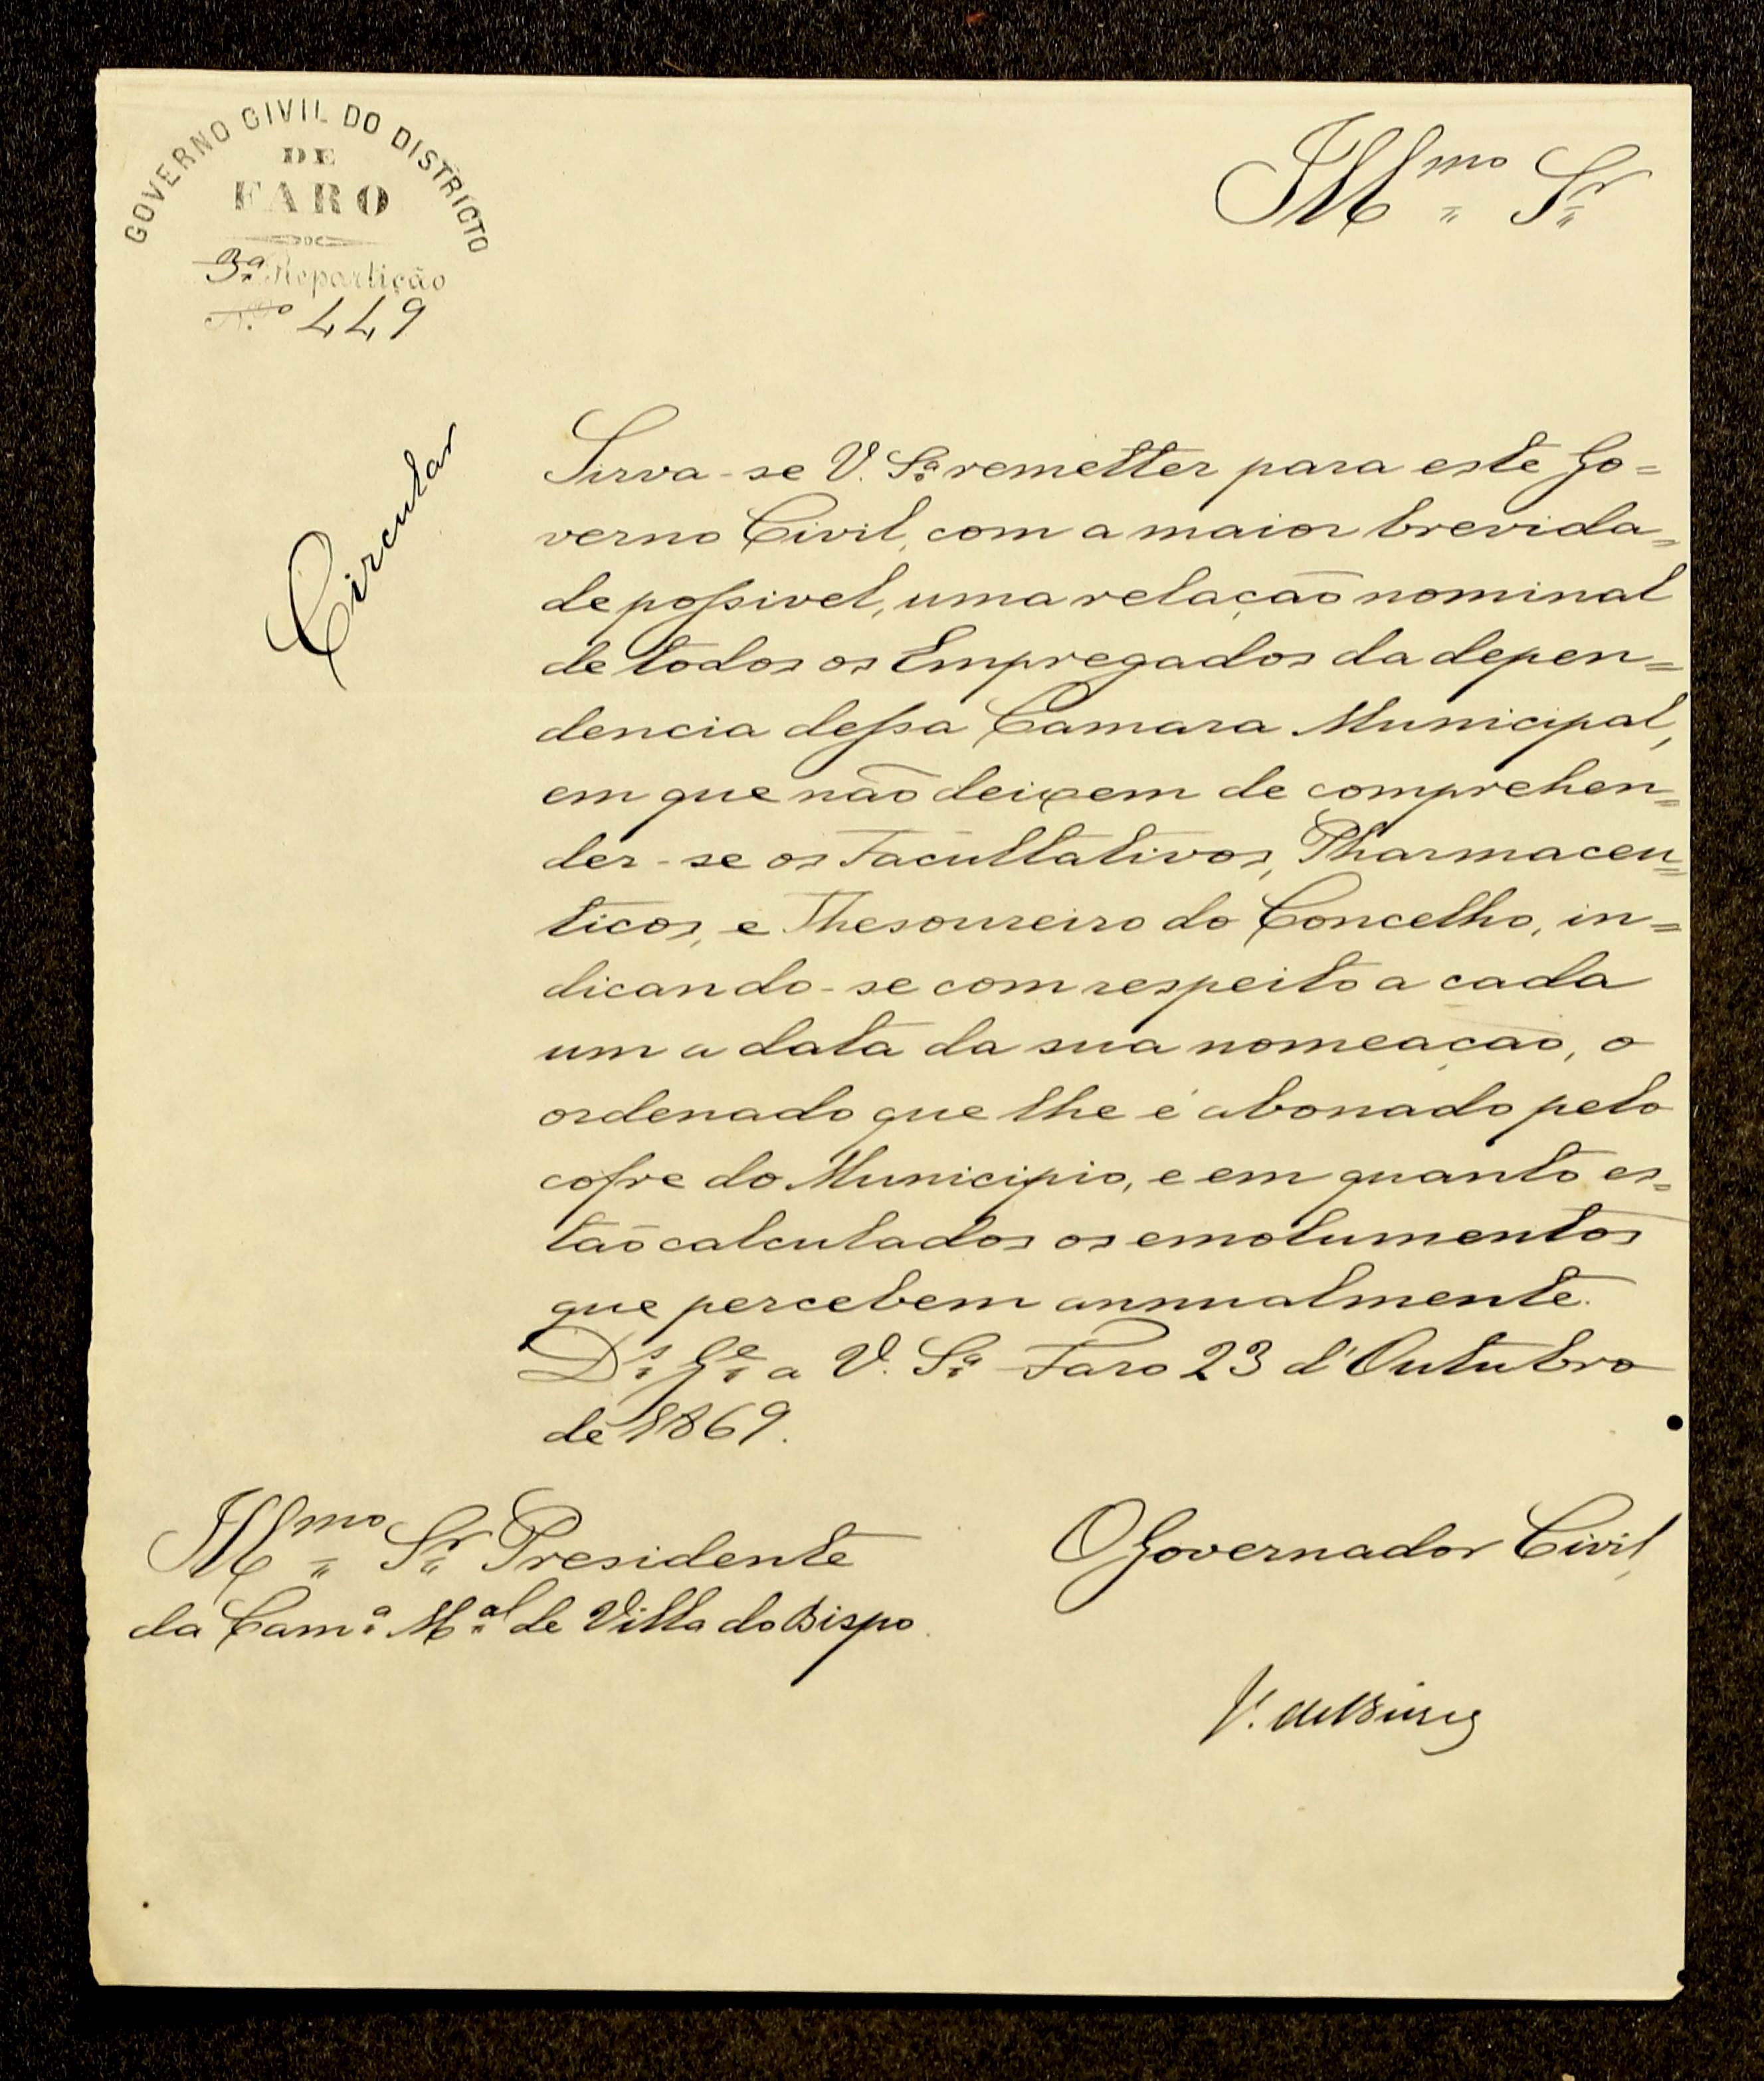 GOVERNO CIVIL DO DISTRICTO
DE
FARO
3ª Repartição
N.º 449
Illmo Sr
Circular
Sirva-se V. Sª remetter para este Go=
verno Civil, com a maior brevida=
de possivel, uma relação nominal
de todos os Empregados da depen=
dencia dessa Camara Municipal,
em que não deixem de comprehen=
der-se os Facultativos, Pharmaceu=
ticos, e Thesoureiro do Concelho, in=
dicando-se com respeito a cada
um a data da sua nomeação, o
ordenado que lhe é abonado pelo
cofre do Municipio, e em quanto es=
tão calculados os emolumentos
que percebem annualmente.
Ds Ge a V. Sª Faro 23 d'Outubro
de 1869.
Illmo Sr Presidente
da Camª Mal de Villa do Bispo.
O Governador Civil,
V. de